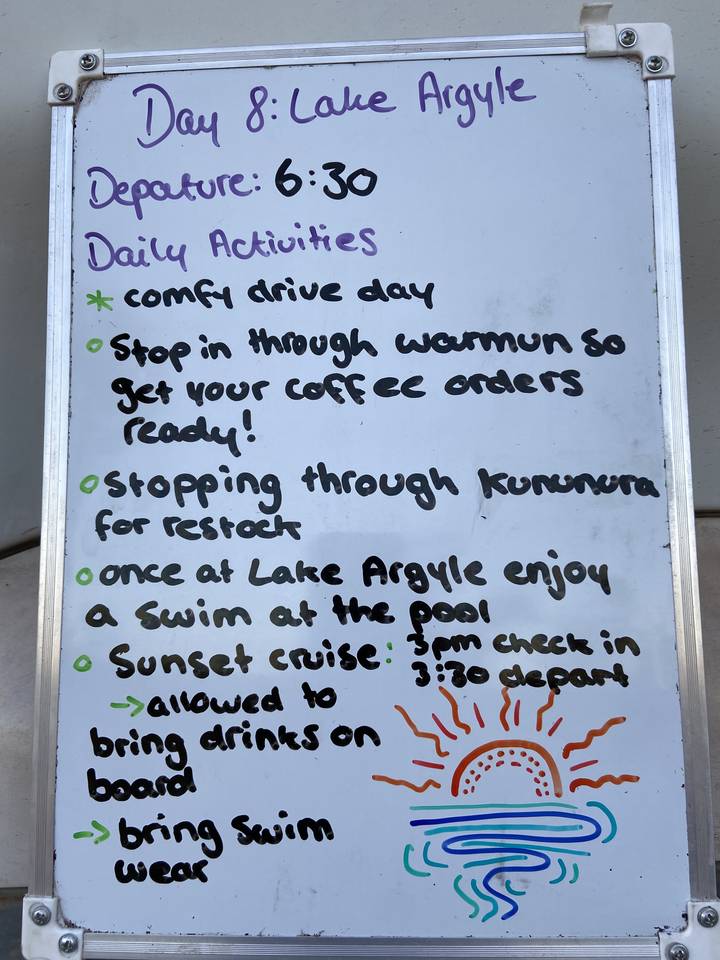 Day 8: Lake Argyle
Depature: 6:30
Daily Activities
* comfy drive day
o Stop in through warmun so
get your coffee orders
ready!
o Stopping through Kununura
for restock
o once at Lake Argyle enjoy
a swim at the pool
o Sunset cruise: 3pm check in
3:30 depart
→ allowed to
bring drinks on
board
→ bring swim
wear